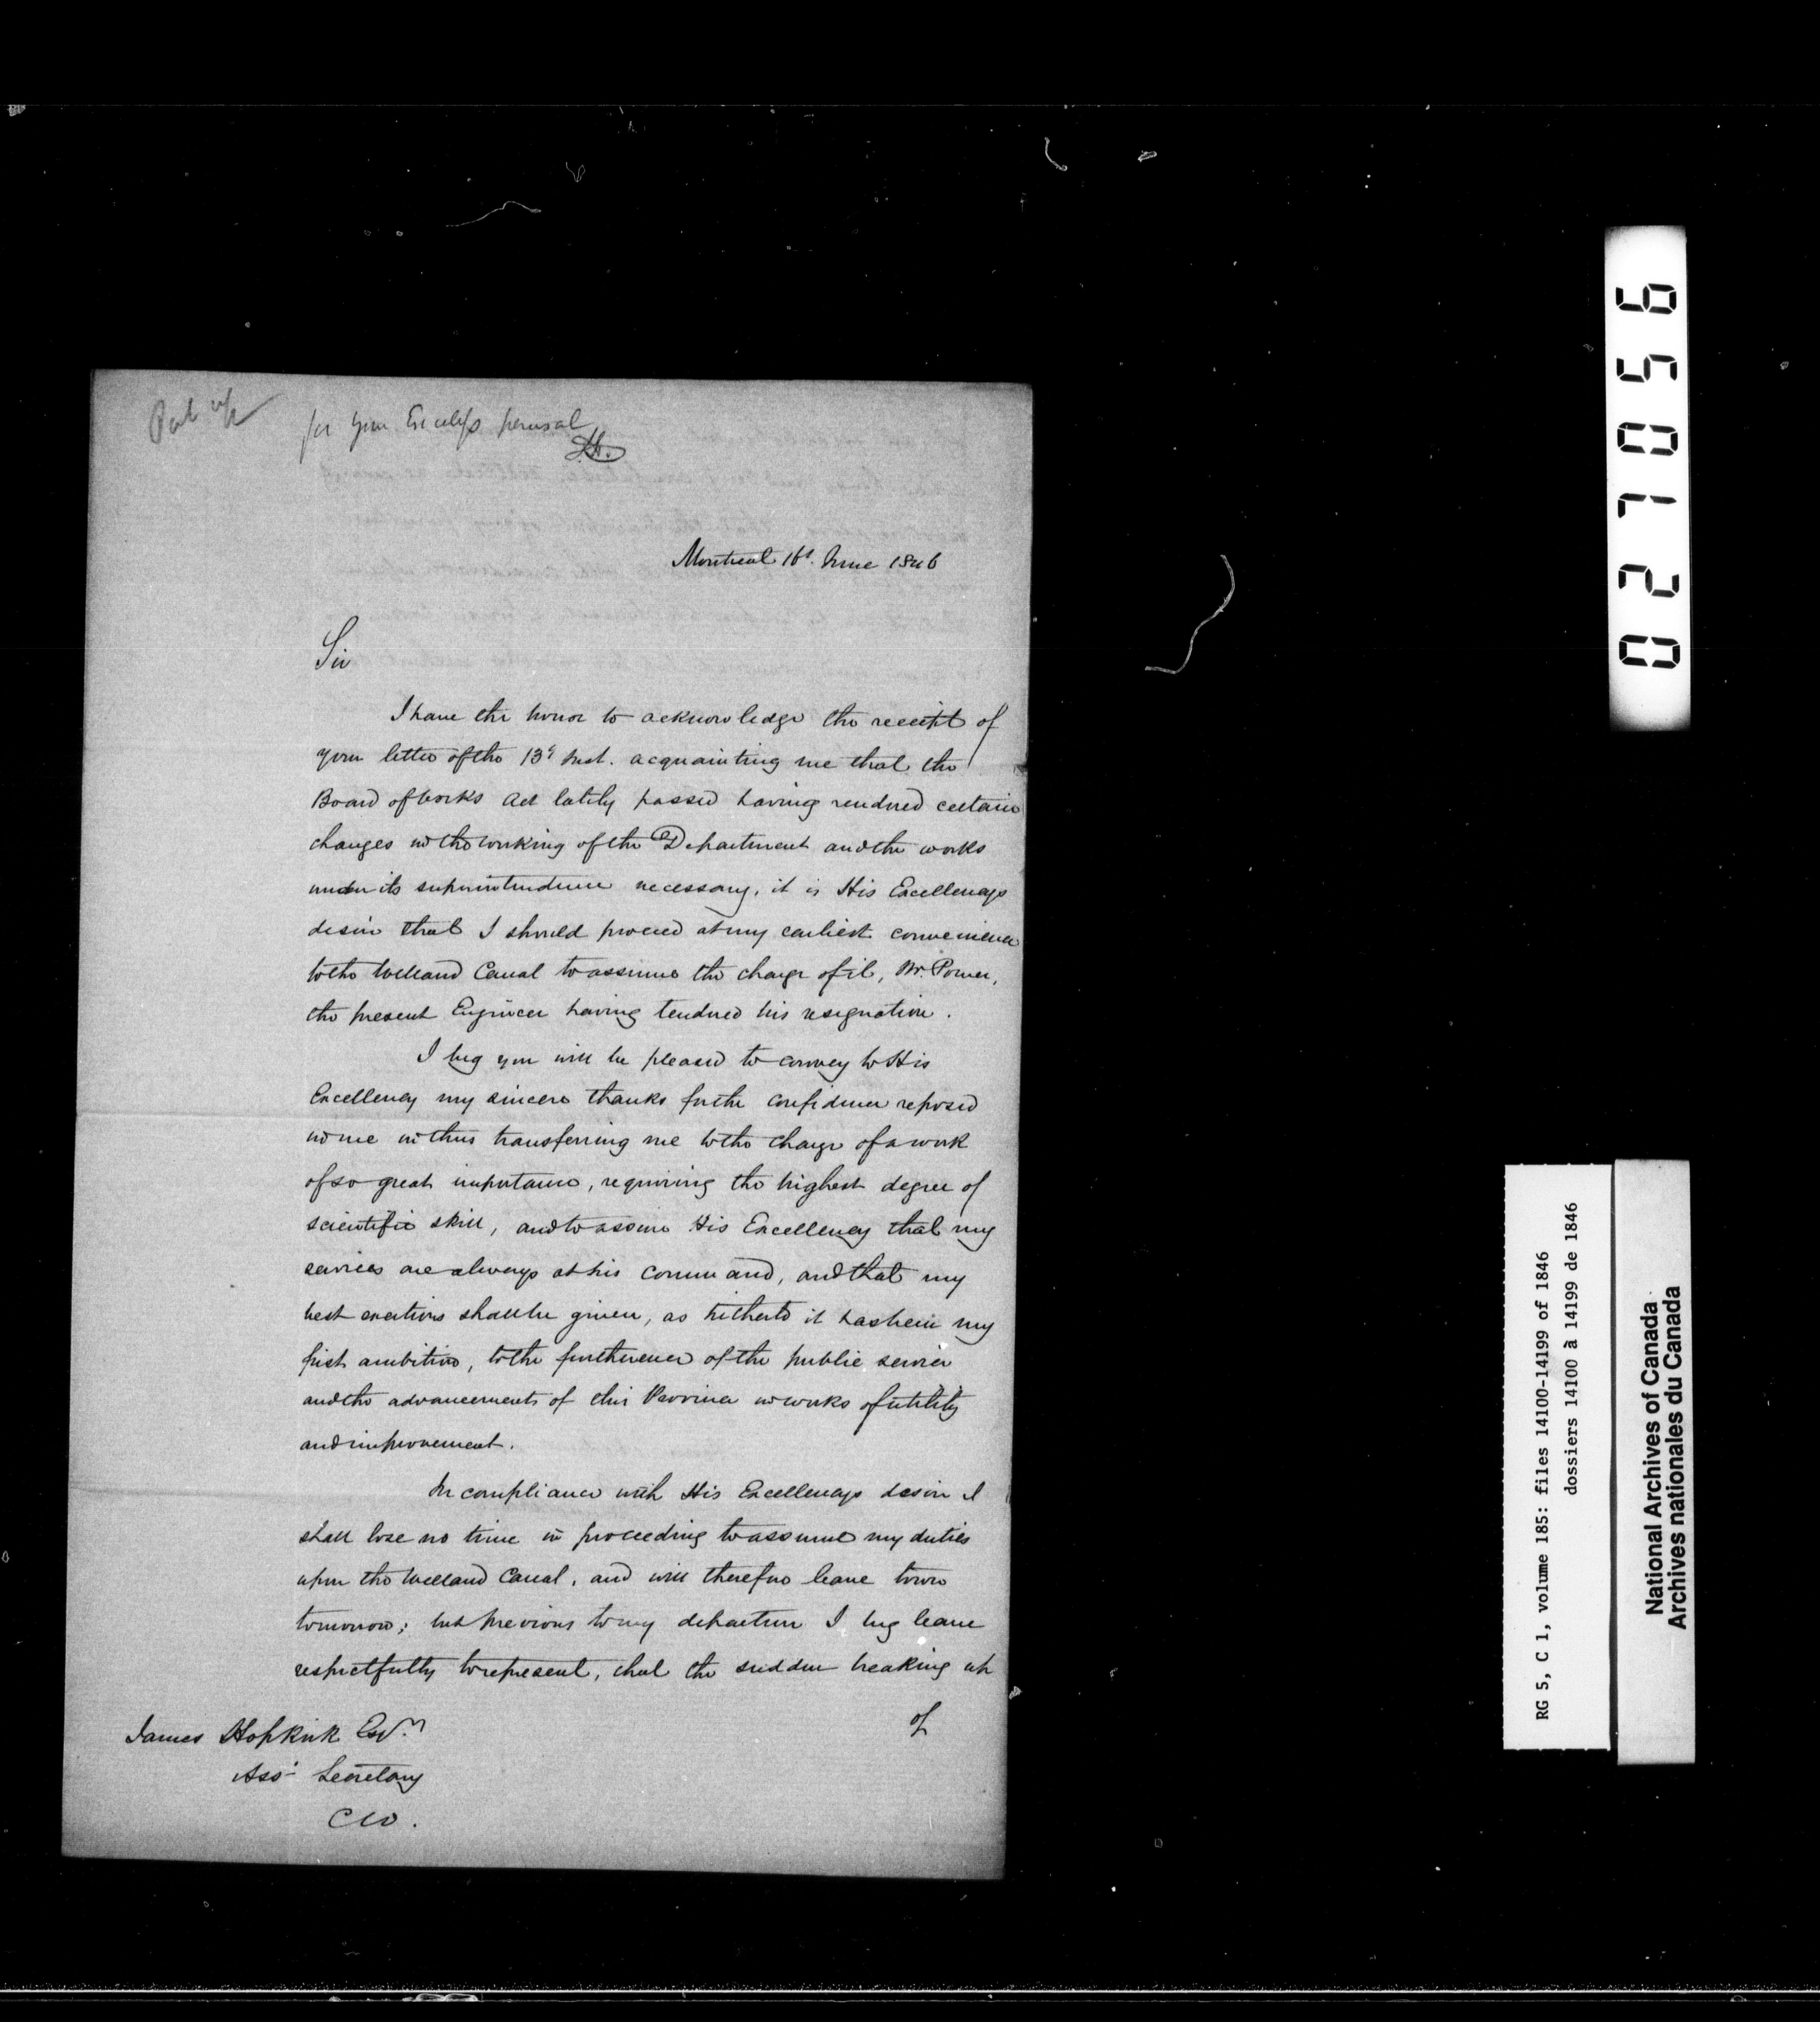 Put up
for your Excellys perusal
JH.
Montreal 16th. June 1846
Sir
I have the honor to acknowledge the receipt of
your letter of the 13th Inst. acquainting me that the
Board of Works Act lately passed having rendered certain
changes in the working of the Department and the works
under its superintendence necessary, it is His Excellencys
desire that I should proceed at my earliest convenience
to the Welland Canal to assume the charge of it, Mr. Power,
the present Engineer having tendered his resignation.
I beg you will be pleased to convey to His
Excellency my sincere thanks for the confidence reposed
in me in thus transferring me to the charge of a work
of so great importance, requiring the highest degree of
scientific skill, and to assure His Excellency that my
services are always at his command, and that my
best exertions shall be given, as hitherto it has been my
first ambition, to the furtherance of the public service
and the advancement of this Province in works of utility
and improvement.
In compliance with His Excellencys desire I
shall lose no time in proceeding to assume my duties
upon the Welland Canal, and will therefore leave town
tomorrow; but previous to my departure I beg leave
respectfully to represent, that the sudden breaking up
of
James Hopkirk Esqr.
Asst. Secretary
CW.
027056
RG 5, C 1, volume 185: files 14100-14199 of 1846
dossiers 14100 à 14199 de 1846
National Archives of Canada
Archives nationales du Canada